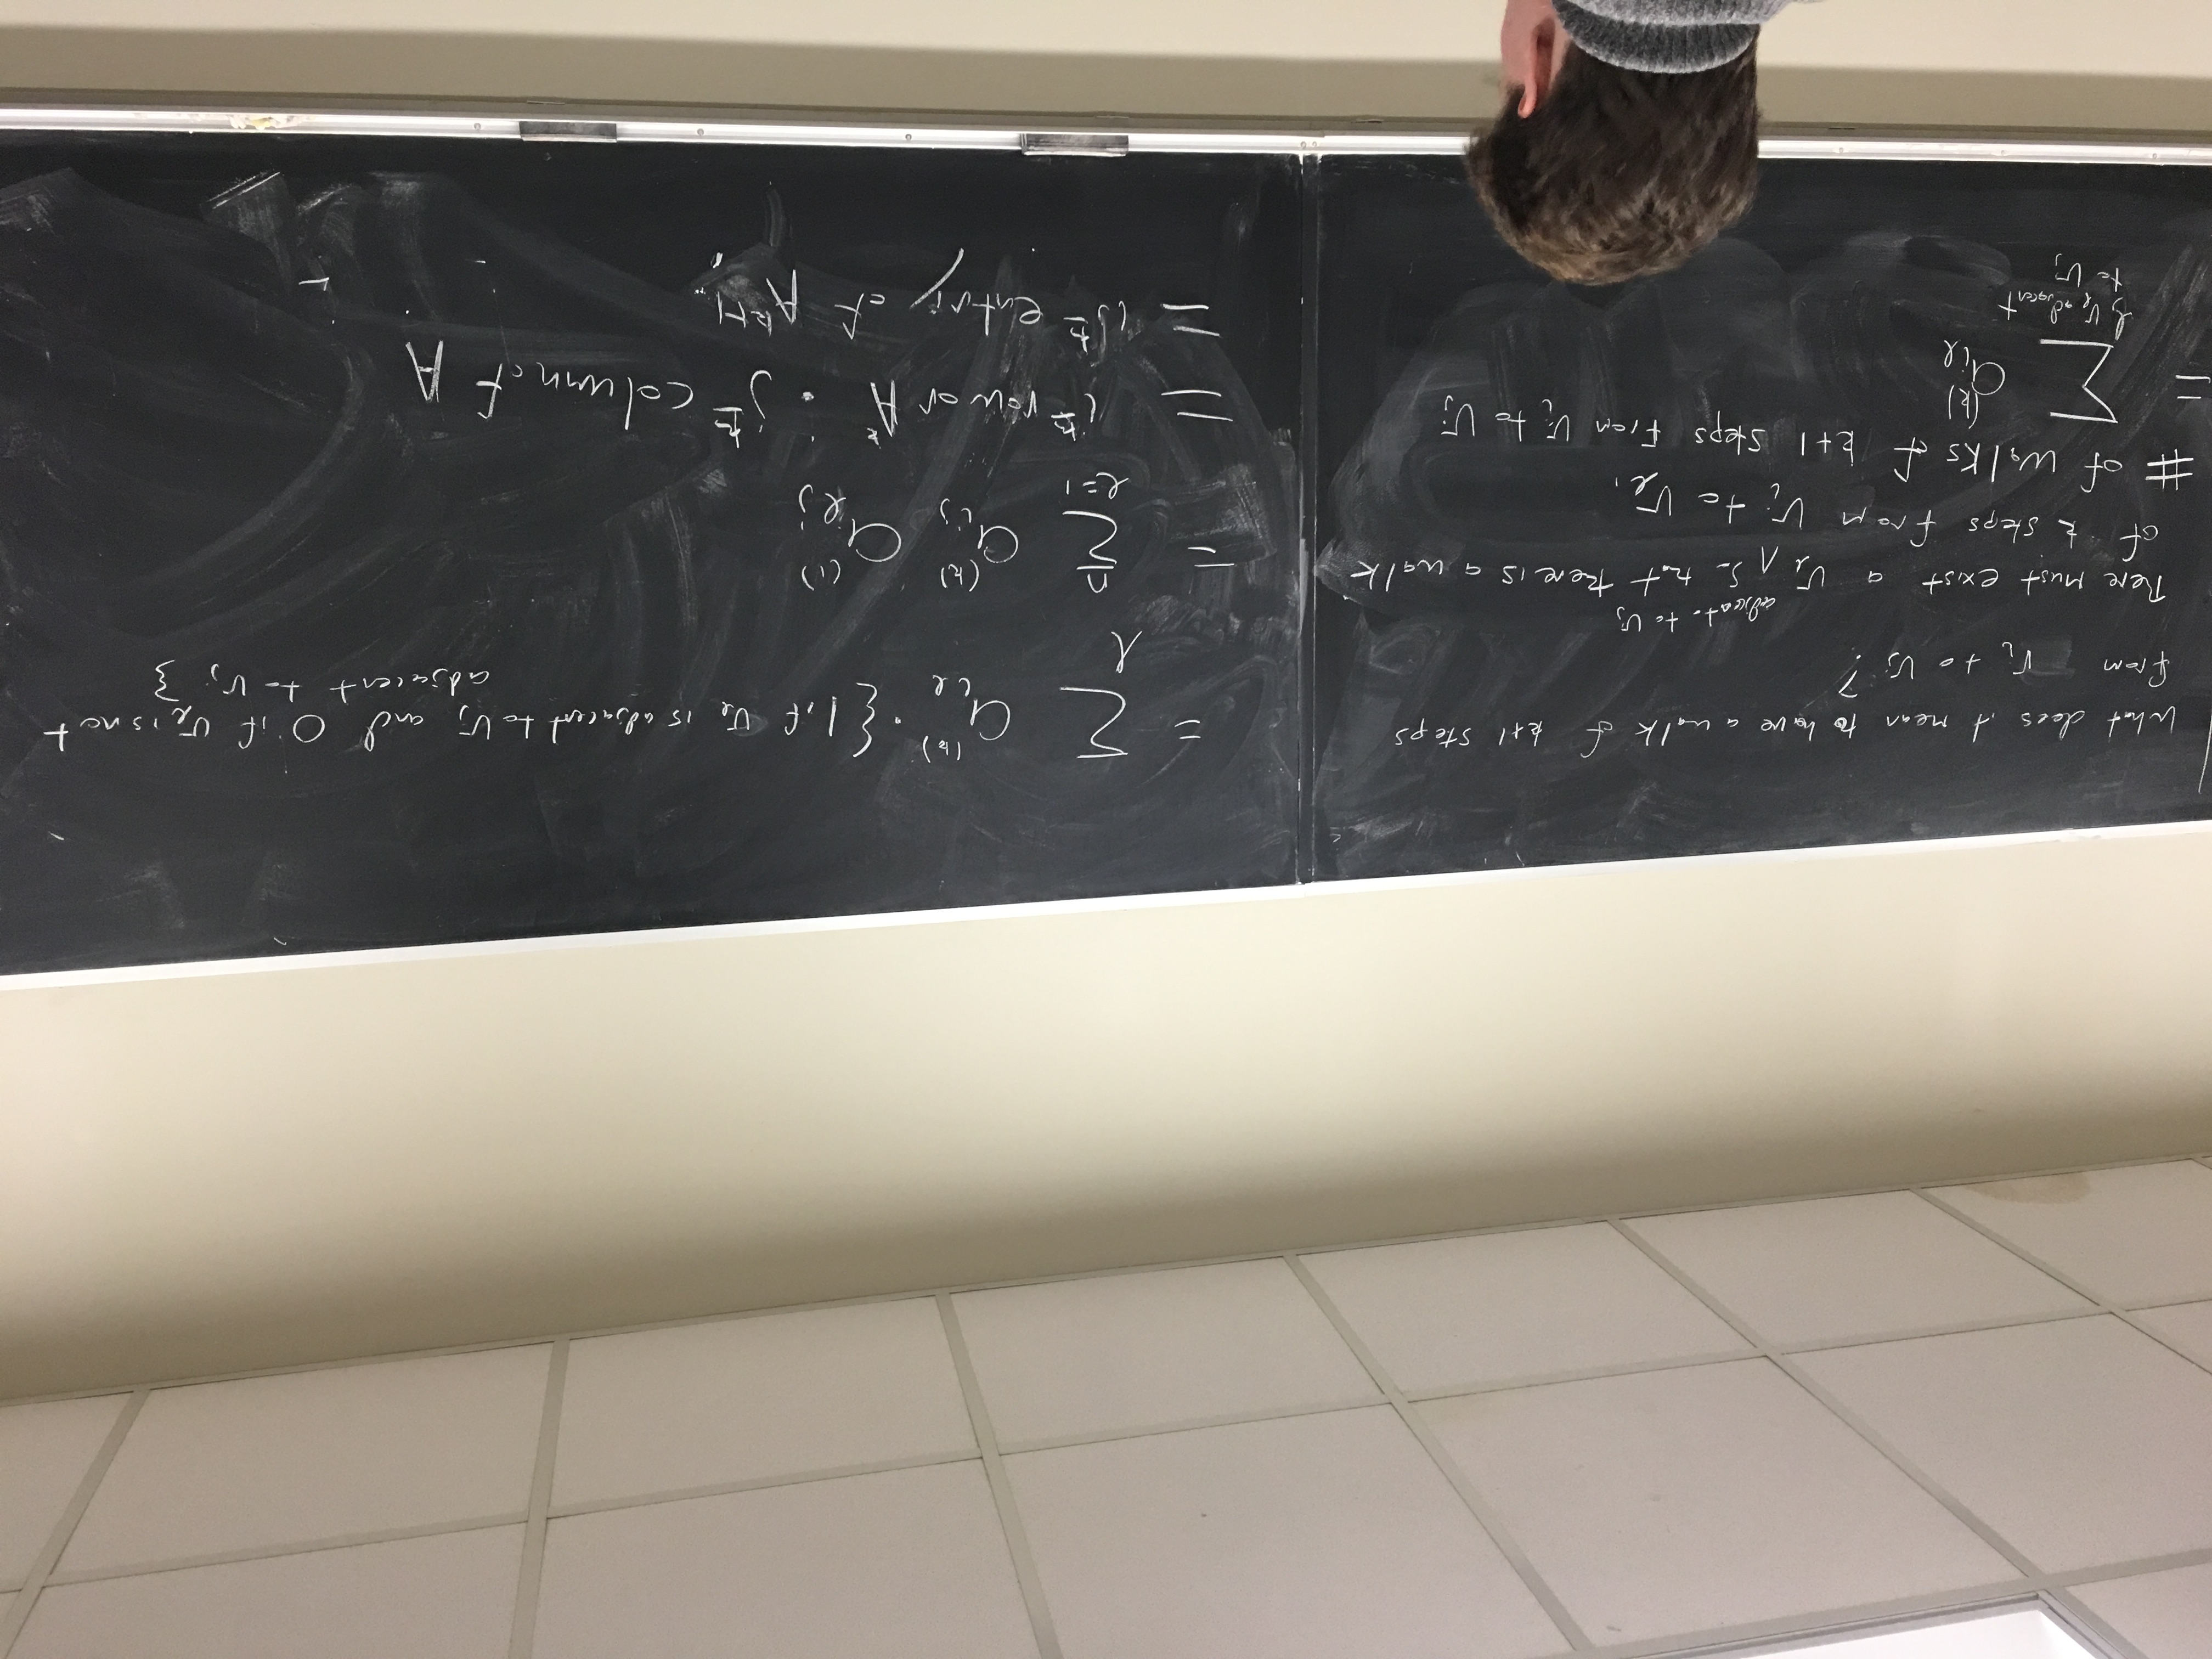 What does it mean to have a walk of k+1 steps
from v_i to v_j?
adjacent to v_j
There must exist a v_ℓ ∧ so that there is a walk
of k steps from v_i to v_ℓ.
# of walks of k+1 steps from v_i to v_j
= Σ a_{iℓ}^{(k)}
ℓ, v_ℓ adjacent
to v_j
= Σ_ℓ a_{iℓ}^{(k)} · { 1 if v_ℓ is adjacent to v_j and 0 if v_ℓ is not
adjacent to v_j }
= Σ_{ℓ=1}^{n} a_{ij}^{(k)} a_{ℓj}^{(1)}
= i^{th} row of A^k · j^{th} column of A
= ij^{th} entry of A^{k+1}